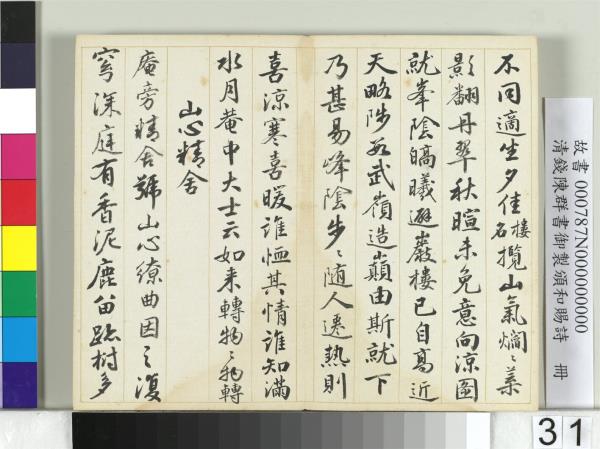 不同適生夕佳樓名攬山氣爛〻葉
影翻丹翠秋暄未免意向涼圖
就峯陰皜曦避巖樓已自高近
天略陟武嶺造巔由斯就下
乃甚易峰陰步〻随人遷熱則
喜涼寒喜暖誰恤其情誰知滿
水月菴中大士云如来轉物〻物轉
山心精舍
庵旁精舍號山心繚曲因之復
穹深庭有香泥鹿留跡樹多
故書 000787N000000000
清錢陳群書御製頒和賜詩 冊
31